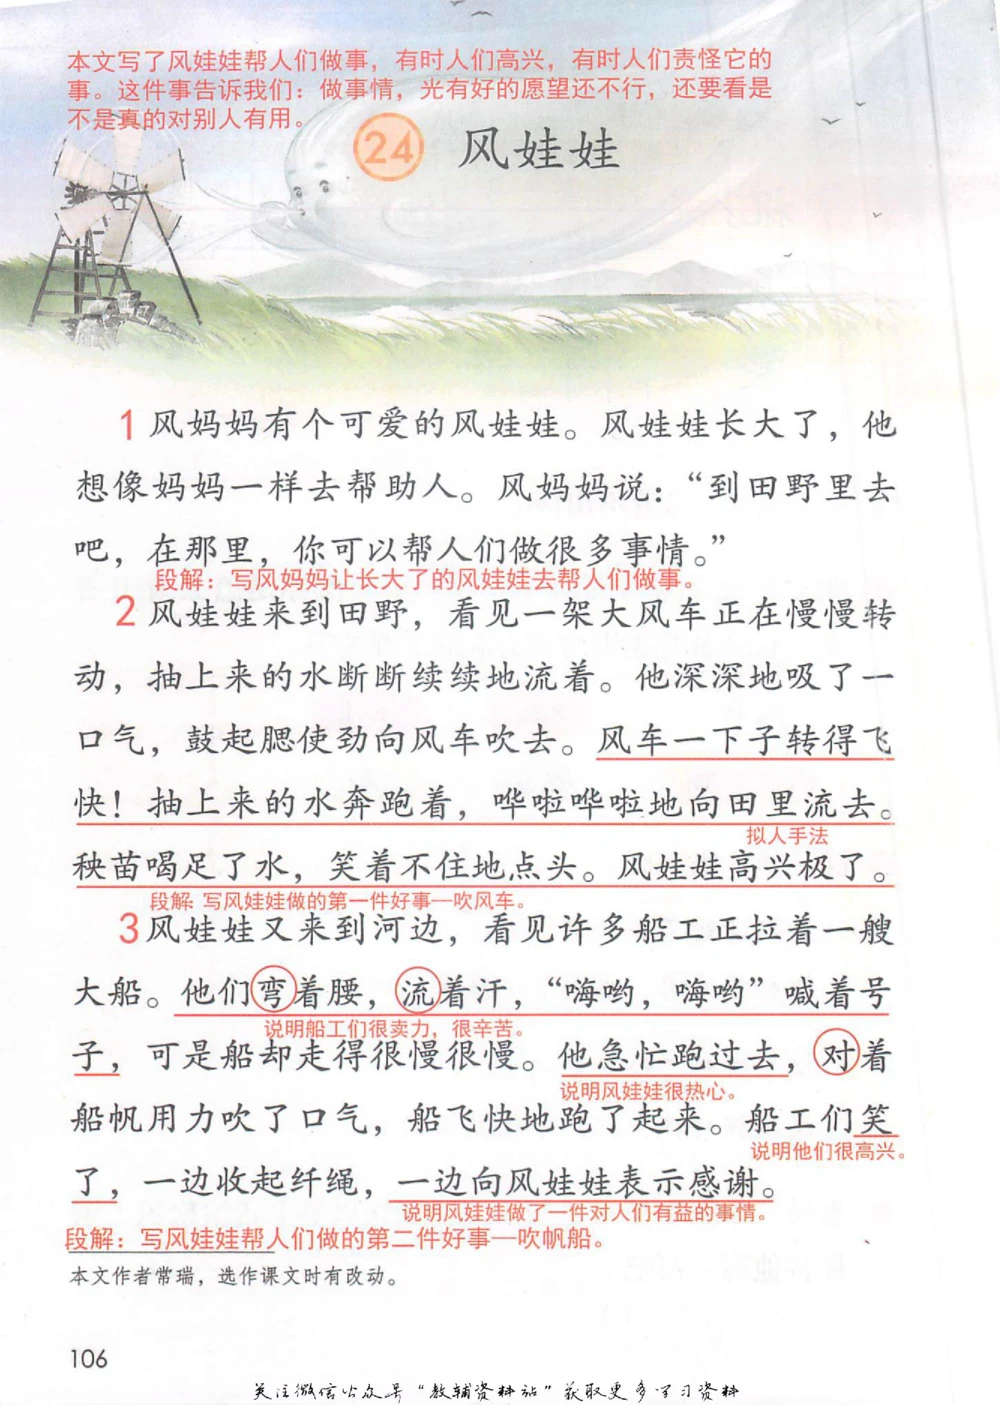 本文写了风娃娃帮人们做事，有时人们高兴，有时人们责怪它的
事。这件事告诉我们：做事情，光有好的愿望还不行，还要看是
不是真的对别人有用。
24 风娃娃
1 风妈妈有个可爱的风娃娃。风娃娃长大了，他
想像妈妈一样去帮助人。风妈妈说：“到田野里去
吧，在那里，你可以帮人们做很多事情。”
段解：写风妈妈让长大了的风娃娃去帮人们做事。
2 风娃娃来到田野，看见一架大风车正在慢慢转
动，抽上来的水断断续续地流着。他深深地吸了一
口气，鼓起腮使劲向风车吹去。风车一下子转得飞
快！抽上来的水奔跑着，哗啦哗啦地向田里流去。
拟人手法
秧苗喝足了水，笑着不住地点头。风娃娃高兴极了。
段解：写风娃娃做的第一件好事—吹风车。
3 风娃娃又来到河边，看见许多船工正拉着一艘
大船。他们弯着腰，流着汗，“嗨哟，嗨哟”喊着号
说明船工们很卖力，很辛苦。
子，可是船却走得很慢很慢。他急忙跑过去，对着
说明风娃娃很热心。
船帆用力吹了口气，船飞快地跑了起来。船工们笑
说明他们很高兴。
了，一边收起纤绳，一边向风娃娃表示感谢。
说明风娃娃做了一件对人们有益的事情。
段解：写风娃娃帮人们做的第二件好事—吹帆船。
本文作者常瑞，选作课文时有改动。
106
关注微信公众号“教辅资料站”获取更多学习资料